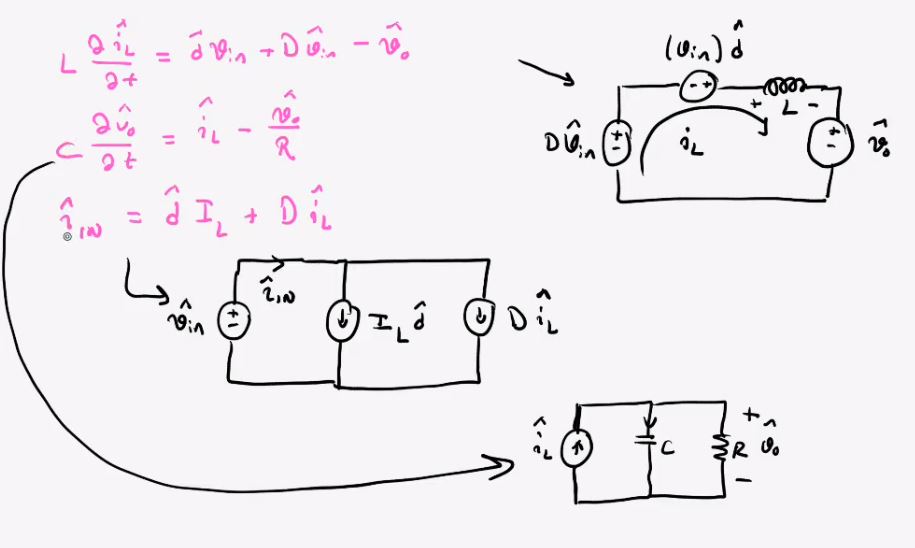 L ∂î_L/∂t = d̂ v_in + D v̂_in − v̂_o
C ∂v̂_o/∂t = î_L − v̂_o/R
î_IN = d̂ I_L + D î_L
(v_in) d̂
+ L −
D v̂_in + − i_L + − v̂_o
− +
î_IN
v̂_in + − I_L d̂ D î_L
î_L C R + v̂_o −